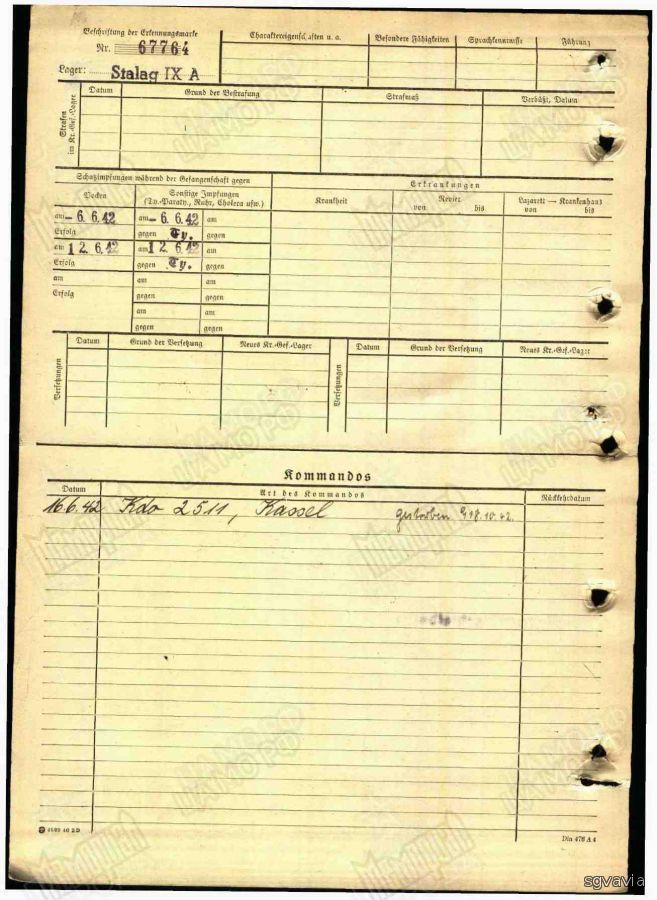 Beschriftung der Erkennungsmarke
Nr. 67764
Lager: Stalag IX A
Charaktereigenschaften u. a.
Besondere Fähigkeiten
Sprachkenntnisse
Führung
Strafen im Kr.-Gef.-Lager
Datum
Grund der Bestrafung
Strafmaß
Verbüßt, Datum
Schutzimpfungen während der Gefangenschaft gegen
Erkrankungen
Pocken
Sonstige Impfungen
(Ty.-Paraty., Ruhr, Cholera usw.)
Krankheit
Revier
von bis
Lazarett — Krankenhaus
von bis
am - 6. 6. 42 am - 6. 6. 42 am
Erfolg gegen Ty. gegen
am 1 2. 6. 42 am 1 2. 6. 42 am
Erfolg gegen Ty. gegen
am am am
Erfolg gegen gegen
am am
gegen gegen
Versetzungen
Datum
Grund der Versetzung
Neues Kr.-Gef.-Lager
Versetzungen
Datum
Grund der Versetzung
Neues Kr.-Gef.-Lager
Kommandos
Datum
Art des Kommandos
Rückkehrdatum
16.6.42 Kdo 2511, Kassel gestorben 18.10.42.
Din 476 A 4
МЕМОРИАЛ
ЦАМО РФ
sgvavia